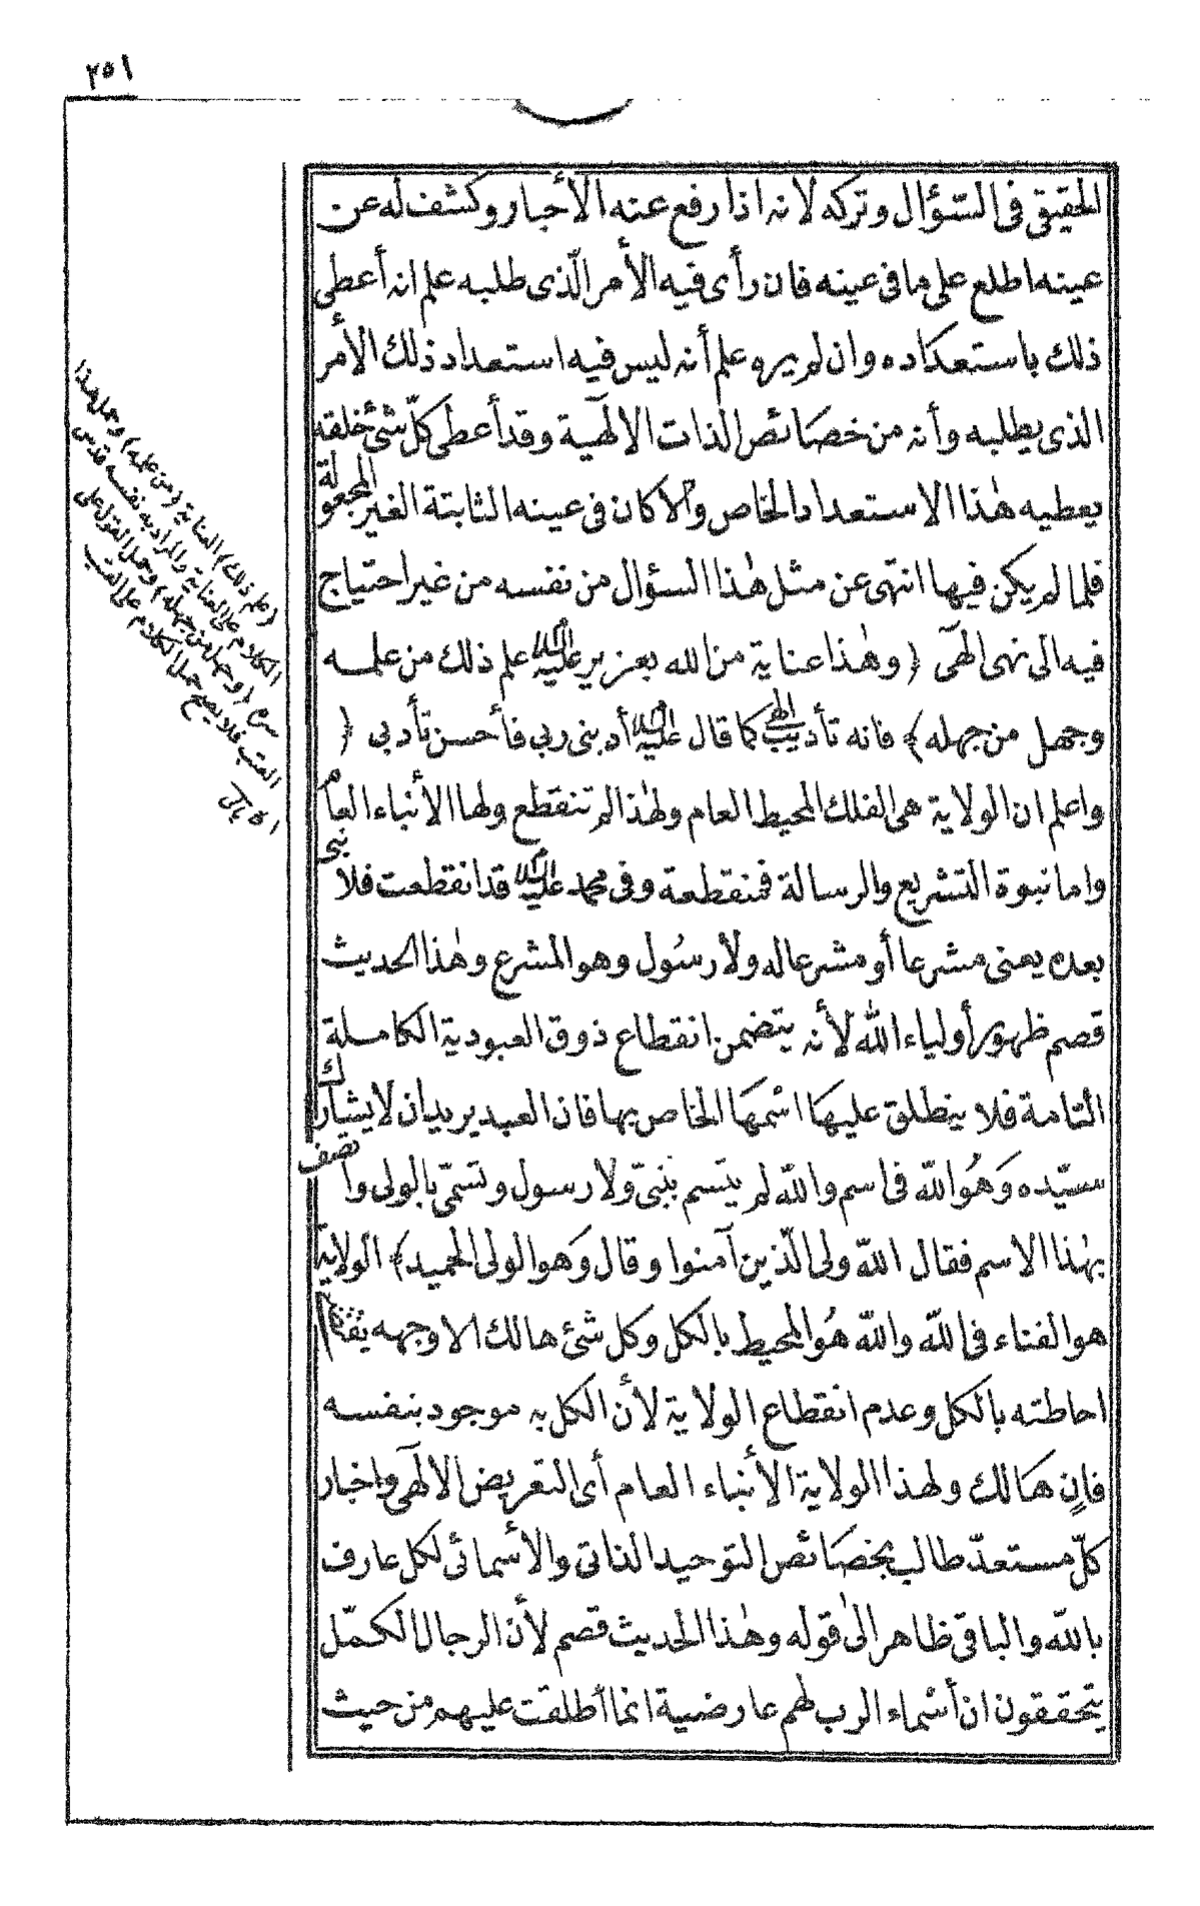 ٢٥١
الحقيقى فى السّؤال وتركه لانه اذا رفع عنه الأخبار وكشف له عن
عينه اطلع على ما فى عينه فان رأى فيه الأمر الّذى طلبه علم انه أعطى
ذلك باستعداده وان لم يره علم أنه ليس فيه استعداد ذلك الأمر
الذى يطلبه وأنه من خصائص الذات الالٓهية وقد أعطى كلّ شئ خلقه
يعطيه هٰذا الاستعداد الخاص والا كان فى عينه الثابتة الغير المجعولة
فلما لم يكن فيها انتهى عن مثل هٰذا السؤال من نفسه من غير احتياج
فيه الى نهى الٓهى ﴿ وهٰذا عناية من الله بعزير عليه السلام علم ذلك من علمه
وجهل من جهله ﴾ فانه تأديب الٓهى كما قال عليه السلام أدبنى ربى فأحسن تأدبى ﴿
واعلم ان الولاية هى الفلك المحيط العام ولهٰذا لم تنقطع ولها الأنباء العام
واما نبوة التشريع والرسالة فمنقطعة وفى محمد عليه السلام قد انقطعت فلا نبى
بعده يعنى مشرعا أو مشرعا له ولا رسُول وهو المشرع وهٰذا الحديث
قصم ظهور أولياء الله لأنه يتضمن انقطاع ذوق العبودية الكاملة
التامة فلا ينطلق عليها اسْمهَا الخاص بها فان العبد يريد ان لا يشارك
سيّده وَهُو اللّه فى اسم واللّه لم يتسم بنبىّ ولا رسول وتسمّى بالولى واتصف
بهٰذا الاسم فقال اللّه ولى الّذين آمنوا وقال وَهو الولى الحميد ﴾ الولاية
هو الفناء فى اللّه واللّه هُو المحيط بالكل وكل شئ هالك الا وجهه يقتضى
احاطته بالكل وعدم انقطاع الولاية لأن الكل به موجود بنفسه
فانٍ هَالك ولهذا الولاية الأنباء العام أى التعريض الالٓهى واخبار
كلّ مستعدّ طالب بخصَائص التوحيد الذاتى والأسمائى لكل عارف
باللّه والباقى ظاهر الىٰ قوله وهٰذا الحديث قصم لأن الرجال الكمّل
يتحققون ان أسْماء الرب لهم عارضية انما أطلقت عليهم من حيث
(علم ذلك) العناية (من علمه) وحمل هذا
الكلام على العناية والمراد به نفسه قدس
سره (وجهل من جهله) وحمل القول على
العتب فلا يصح حمل الكلام على العتب
اه بالى